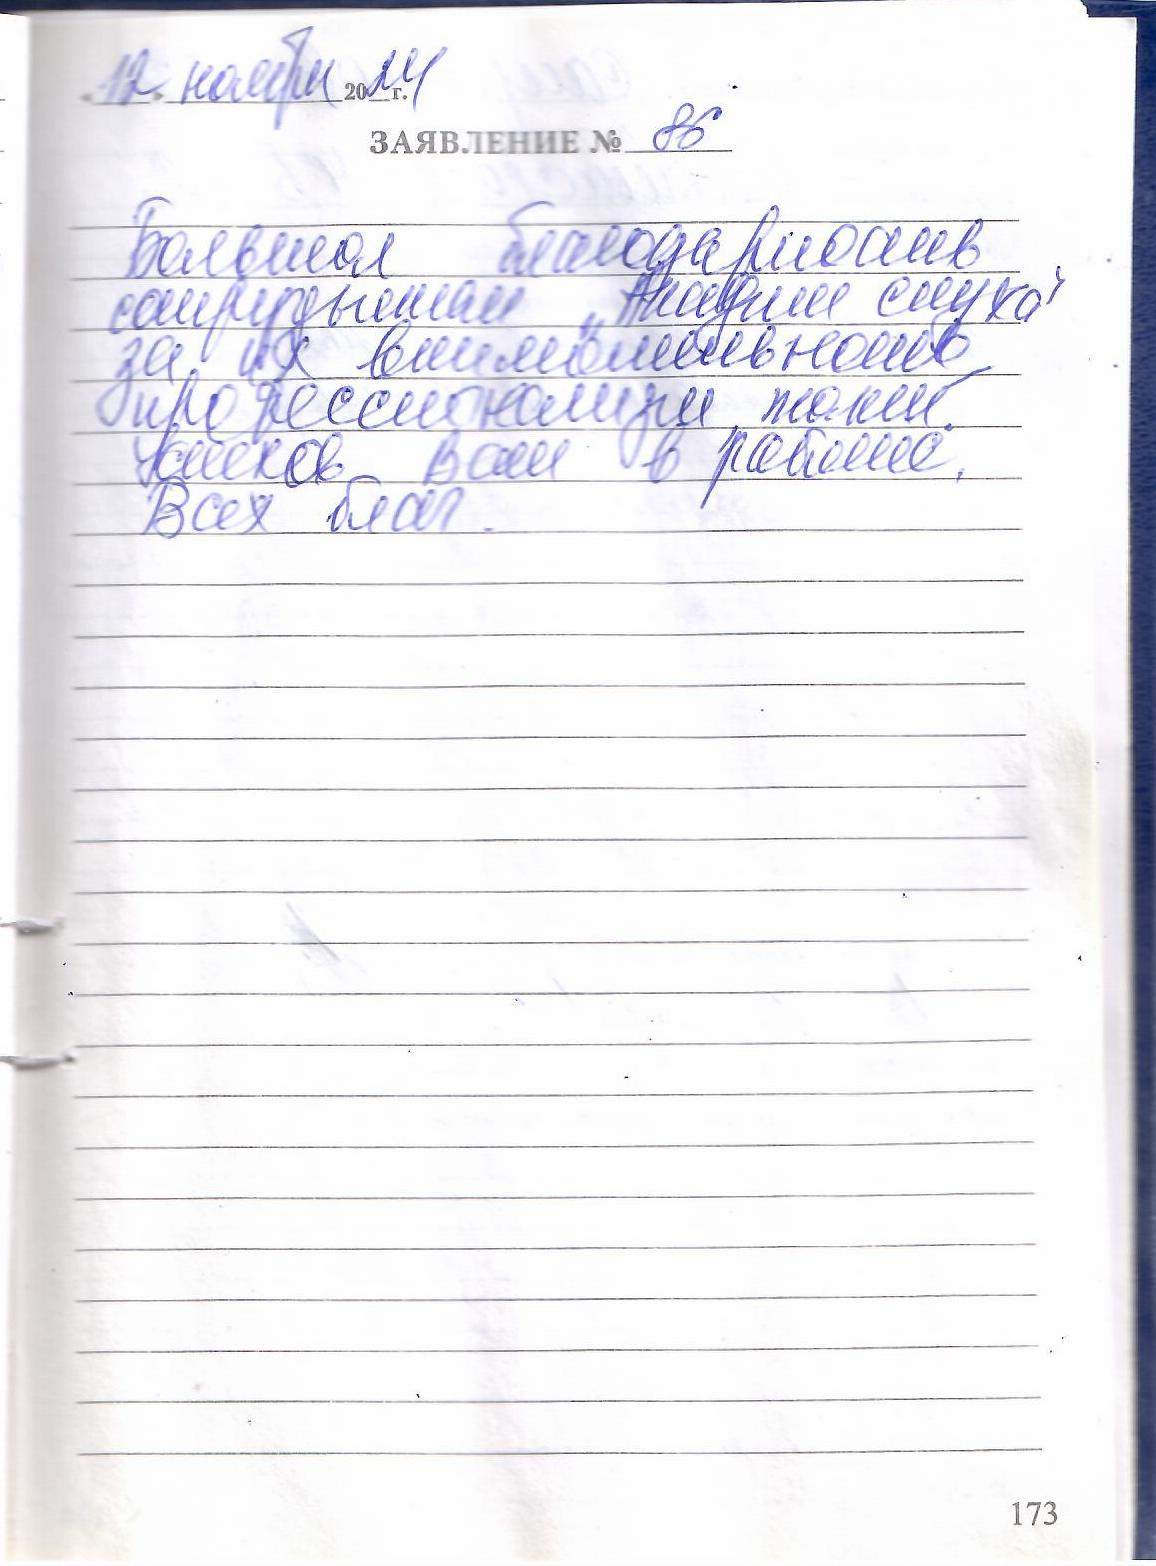 12 ноября 2024 г.
ЗАЯВЛЕНИЕ № 86
Большая благодарность
сотрудникам „Академии слуха"
за их внимательность
профессионализм, такт.
Успехов Вам в работе.
Всех благ.
173